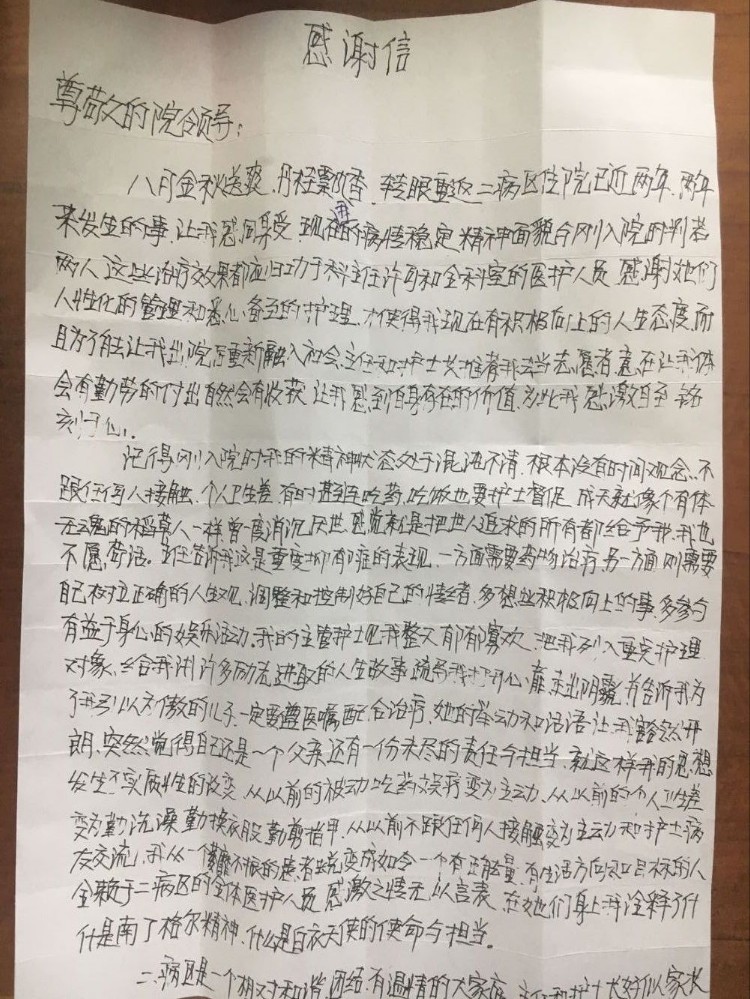 感谢信
尊敬的院领导:
八月金秋送爽、丹桂飘香、转眼重返二病区住院已近两年、两年
来发生的事、让我感同身受、现在我的病情稳定、精神面貌今刚入院时判若
两人、这些治疗效果都应归功于科主任许可和全科室的医护人员、感谢她们
人性化的管理和悉心备至的护理、才使得我现在有积极向上的人生态度、而
且为了能让我出院后重新融入社会、主任和护士长推荐我去当志愿者、意在让我体
会有勤劳的付出自然会有收获、让我感到自身存在的价值、为此我感激自至、铭
刻于心。
记得刚入院时我的精神状态处于混浊不清、根本没有时间观念、不
跟任何人接触、个人卫生差、有时甚至连吃药、吃饭也要护士督促、成天就像个有体
无魂的稻草人一样、曾一度消沉、厌世、感觉就是把世人追求的所有都给予我、我也
不愿苟活。主任告诉我这是重度抑郁症的表现、一方面需要药物治疗、另一方面则需要
自己树立正确的人生观、调整和控制好自己的情绪、多想些积极向上的事、多参与
有益于身心的娱乐活动。我的主管护士见我整天郁郁寡欢、把我列入重点护理
对象、给我讲许多励志、进取的人生故事、疏导我打开心扉、走出阴霾、并告诉我为
了我引以为傲的儿子、一定要遵医嘱配合治疗、她的举动和话语让我豁然开
朗、突然觉得自己还是一个父亲、还有一份未尽的责任与担当、就这样我的思想
发生了实质性的改变、从以前的被动吃药误疗变为主动、从以前的个人卫生差
变为勤洗澡、勤换衣服、勤剪指甲、从以前不跟任何人接触变为主动和护士、病
友交流、我从一个萎靡不振的患者蜕变成如今一个有正能量、有生活方向和目标的人
全赖于二病区的全体医护人员、感激之情无以言表、在她们身上我诠释了什
什是南丁格尔精神、什么是白衣天使的使命与担当。
二病区是一个相对和谐、团结、有温情的大家庭、主任和护士长好似家长